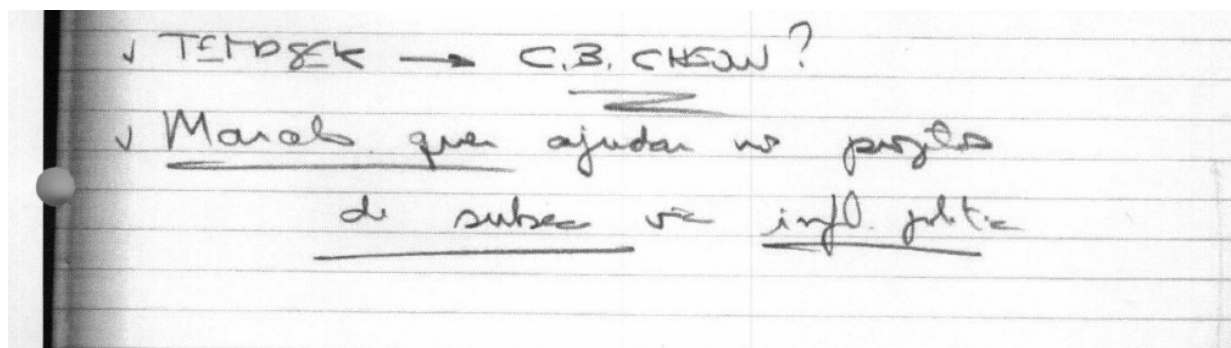 ✓ TEMASEK → C.B. CHEOW?
✓ Marcelo quer ajudar no projeto
de subsea via infl. politica